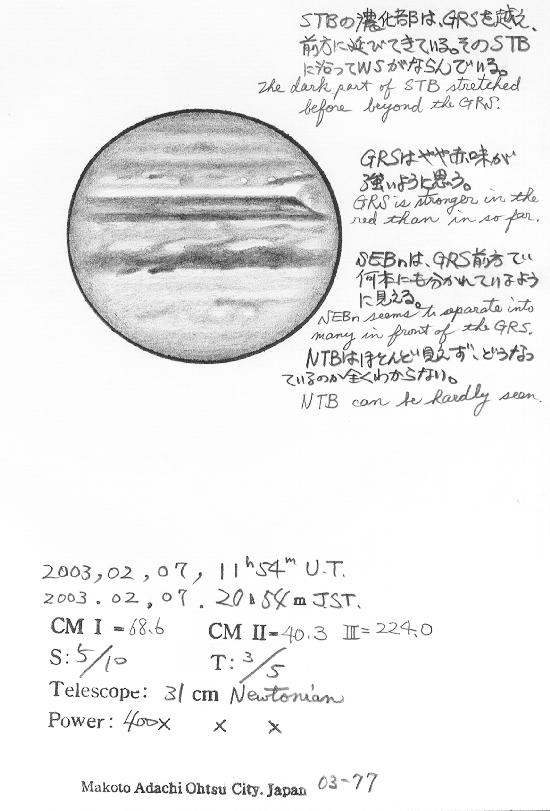 STBの濃化部は、GRSを越え、
前方に延びてきている。そのSTB
に沿ってWSがならんでいる。
The dark part of STB stretched
before beyond the GRS.
GRSはやや赤味が
強いように思う。
GRS is stronger in the
red than in so far.
SEBnは、GRS前方で
何本にも分かれているよう
に見える。
NEBn seems to separate into
many in front of the GRS.
NTBはほとんど見えず、どうなっ
ているのか全くわからない。
NTB can be hardly seen.
2003,02,07, 11h54m U.T.
2003.02,07. 20h54m JST.
CM I =68.6 CM II=40.3 III=224.0
S: 5/10 T: 3/5
Telescope: 31 cm Newtonian
Power: 400x x x
Makoto Adachi Ohtsu City. Japan 03-77